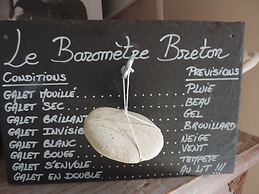 Le Baromètre Breton
CONDITIONS PREVISIONS
GALET MOUILLÉ PLUIE
GALET SEC BEAU
GALET BRILLANT GEL
GALET INVISIBLE BROUILLARD
GALET BLANC NEIGE
GALET BOUGE VENT
GALET S'ENVOLE TEMPETE
GALET EN DOUBLE AU LIT !!!